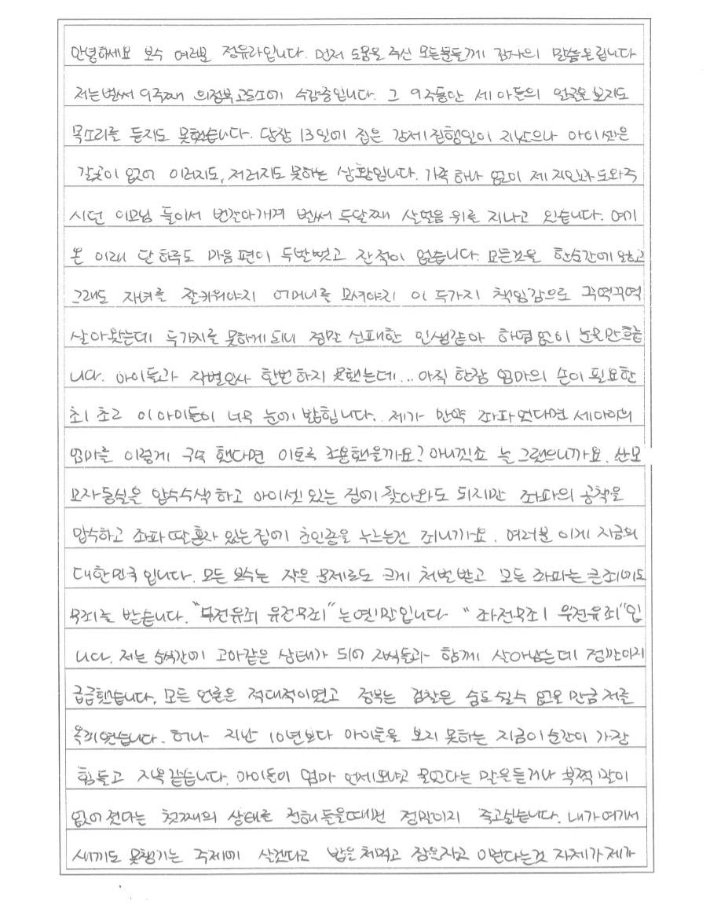 안녕하세요 보수 여러분 정유라입니다. 먼저 도움을 주신 모든분들께 감사의 말씀드립니다
저는벌써 9주째 의정부교도소에 수감중입니다. 그 9주동안 세 아들의 얼굴을 보지도
목소리를 듣지도 못했습니다. 당장 13일에 집은 강제집행일이 지났으나 아이셋은
갈곳이 없어 이러지도, 저러지도 못하는 상황입니다. 가족 하나 없이 제 지인과 도와주
시던 이모님 둘이서 번갈아가며 벌써 두달째 살얼음 위를 지나고 있습니다. 여기
온 이래 단 하루도 마음 편이 두발뻗고 잔적이 없습니다. 모든것을 한순간에 잃고
그래도 자녀를 잘키워야지 어머니를 모셔야지 이 두가지 책임감으로 꾸역꾸역
살아왔는데 두가지를 못하게 되니 정말 실패한 인생같아 하염 없이 눈물만흐릅
니다. 아이들과 작별인사 한번 하지 못했는데... 아직 한참 엄마의 손이 필요한
초1 초2 이 아이들이 너무 눈에 밟힙니다. 제가 만약 좌파였다면 세아이의
엄마를 이렇게 구속 했다면 이토록 조용했을까요? 아니겠죠 늘 그랬으니까요. 산모
모자동실은 압수수색 하고 아이셋 있는 집에 찾아와도 되지만 좌파의 공책을
압수하고 좌파 딸 혼자 있는집에 초인종을 누르는건 죄니까요. 여러분 이게 지금의
대한민국 입니다. 모든 보수는 작은 문제로도 크게 처벌받고 모든 좌파는 큰죄에도
무죄를 받습니다. "무전유죄 유전무죄"는 옛말입니다 "좌전무죄 우전유죄"입
니다. 저는 순식간에 고아같은 상태가 되어 자식들과 함께 살아남는데 정말이지
급급했습니다. 모든 언론은 적대적이였고 정부는 검찰은 숨도 쉴수 없을 만큼 저를
옥죄었습니다. 허나 지난 10년보다 아이들을 보지 못하는 지금이순간이 가장
힘들고 지옥 같습니다. 아이들이 엄마 언제오냐고 울었다는 말을듣거나 부쩍 말이
없어 졌다는 첫째의 상태를 전해 들을때면 정말이지 죽고싶습니다. 내가여기서
새끼도 못챙기는 주제에 살겠다고 밥을 처먹고 잠을자고 이런다는것 자체가 제가